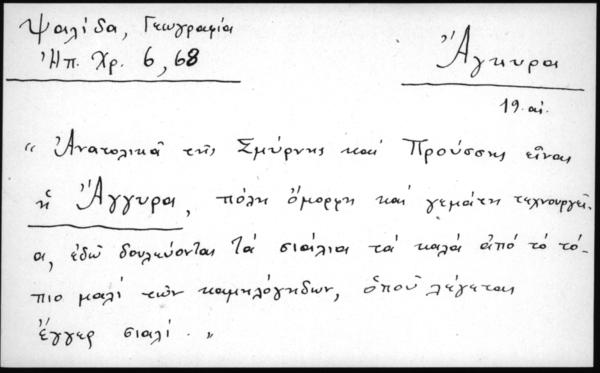 Ψαλίδα, Γεωγραφία
Ἠπ. Χρ. 6, 68
Ἄγκυρα
19. αἰ.
„ Ἀνατολικὰ τῆς Σμύρνης καὶ Προύσσης εἶναι
ἡ Ἄγγυρα, πόλη ὄμορφη καὶ γεμάτη τεχνουργεῖ-
α, ἐδῶ δουλεύονται τὰ σιάλια τὰ καλὰ ἀπὸ τὸ τό-
πιο μαλὶ τῶν καμηλόγηδων, ὁποῦ λέγεται
ἔγγερ σιαλί . „